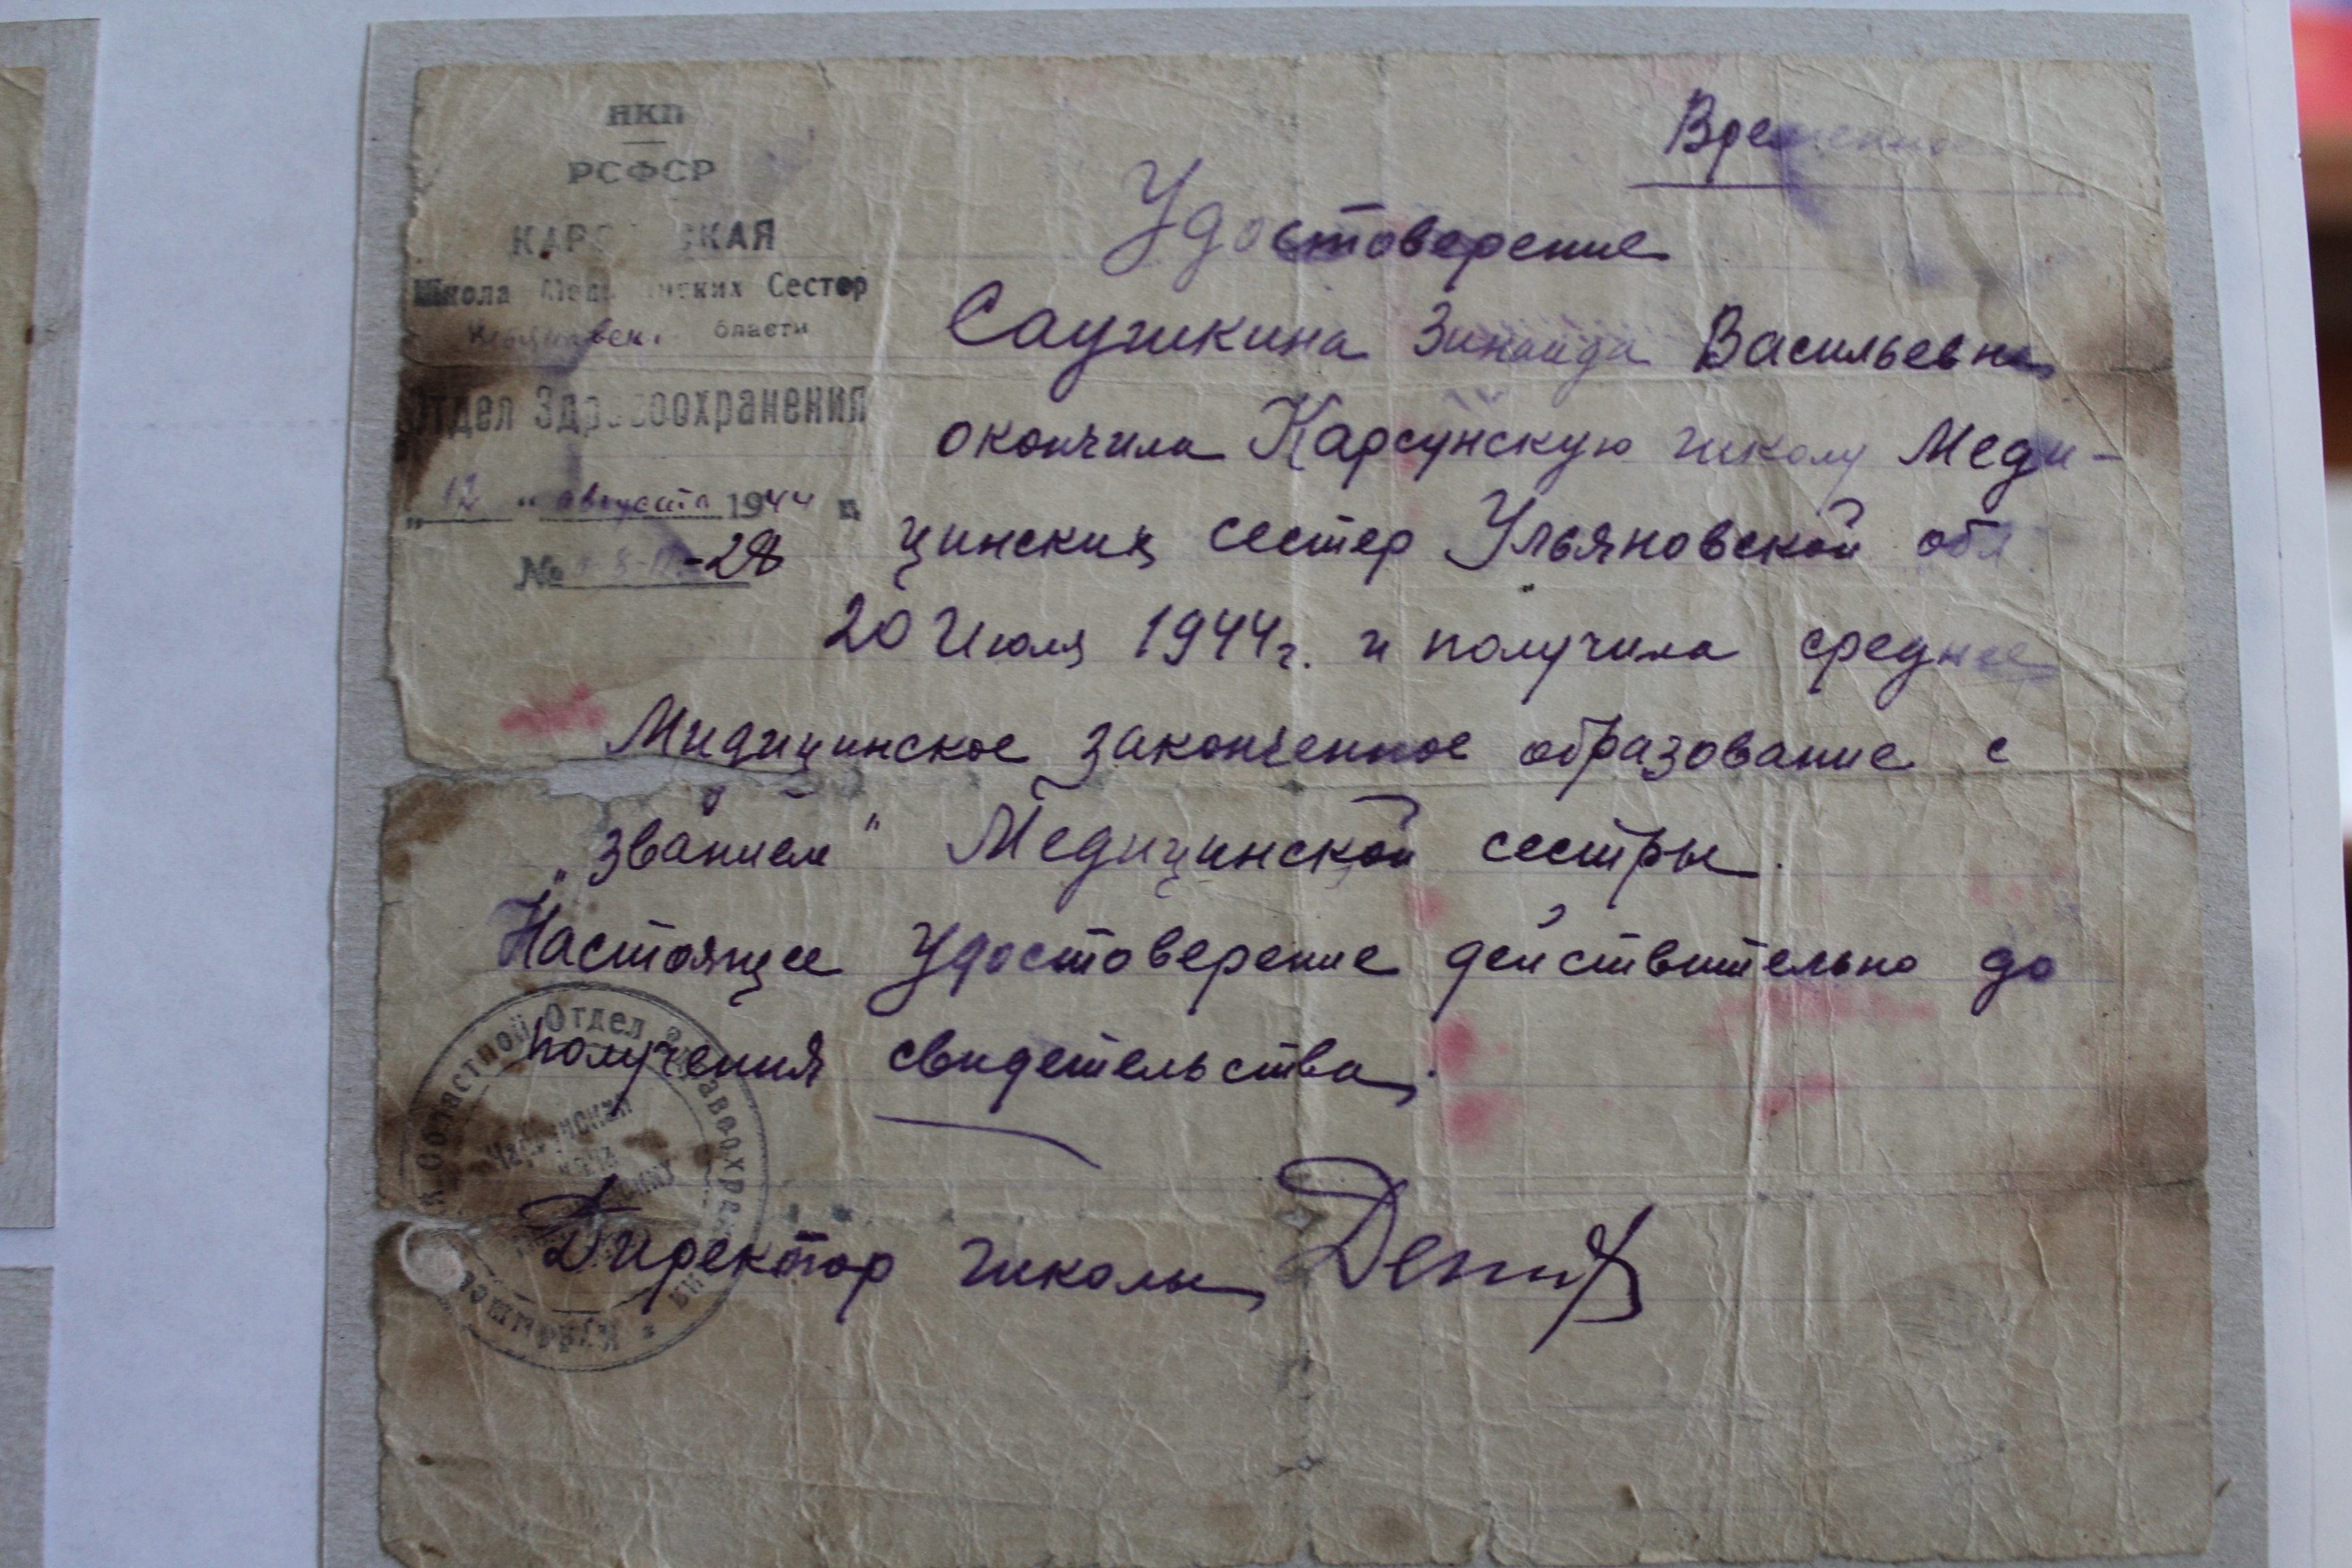 НКП
РСФСР
Школа Сестер
области
Отдел Здравоохранения
"12" августа 1944 г.
№ -28
Временно
Удостоверение
Саушкина Зинаида Васильевна
окончила Карсунскую школу Меди-
цинских сестер Ульяновской обл
20 Июля 1944г. и получила среднее
Мидицинское законченное образование с
„званием" Медицинской сестры.
Настоящее удостоверение действительно до
получения свидетельства.
Директор школы
Областной Отдел Здравоохранения
Куйбышев